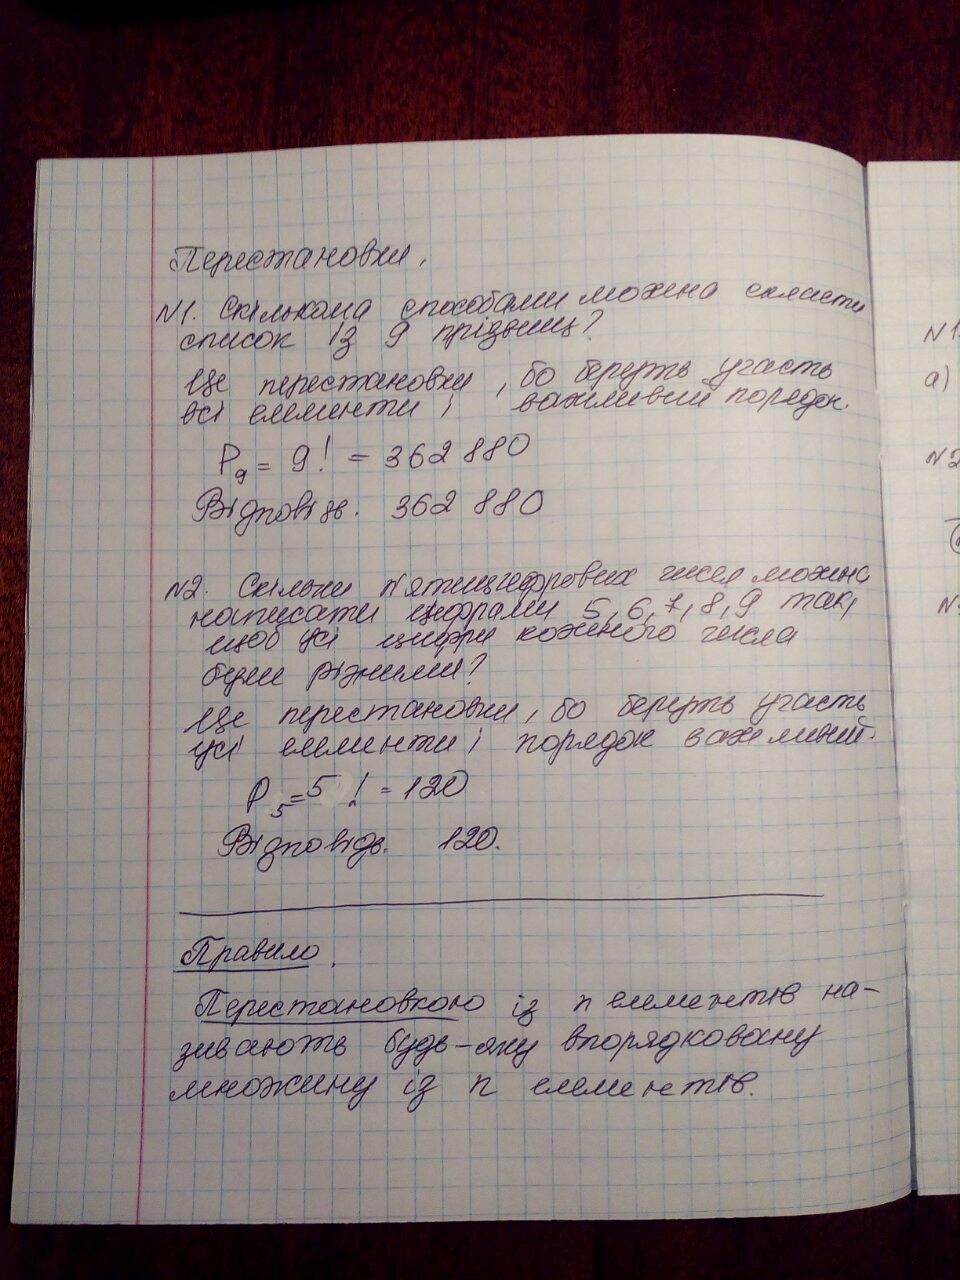 Перестановки.
№1. Скількома способами можна скласти
список із 9 прізвищ?
Це перестановки, бо беруть участь
всі елементи і важливий порядок.
P₉ = 9! = 362 880
Відповідь. 362 880
№2. Скільки п'ятицифрових чисел можна
написати цифрами 5, 6, 7, 8, 9 так,
щоб усі цифри кожного числа
були різними?
Це перестановки, бо беруть участь
усі елементи і порядок важливий.
P₅ = 5! = 120
Відповідь. 120.
Правило.
Перестановкою із n елементів на-
зивають будь-яку впорядковану
множину із n елементів.
№1
а)
№2
№